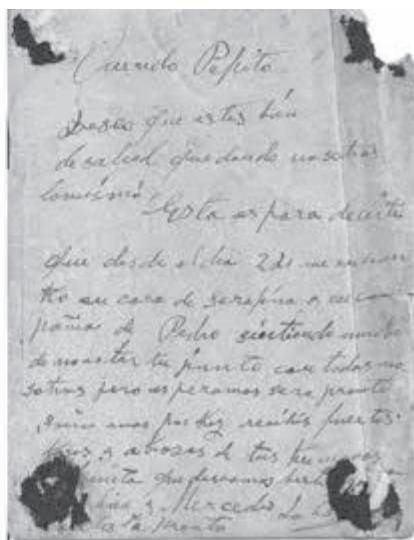 Querido Pepito
Deseo que estes bien
de salud quedando nosotros
lo mismo.
Esta es para decirte
que desde el dia 21 me encuen
tro en casa de serafina a encom
pañia de Pedro sintiendo mucho
de no estar tu junto con todas no
sotras pero esperamos sera pronto
recibes fuertes
y abrazos de tus
que deseamos
y Mercedes
pronto